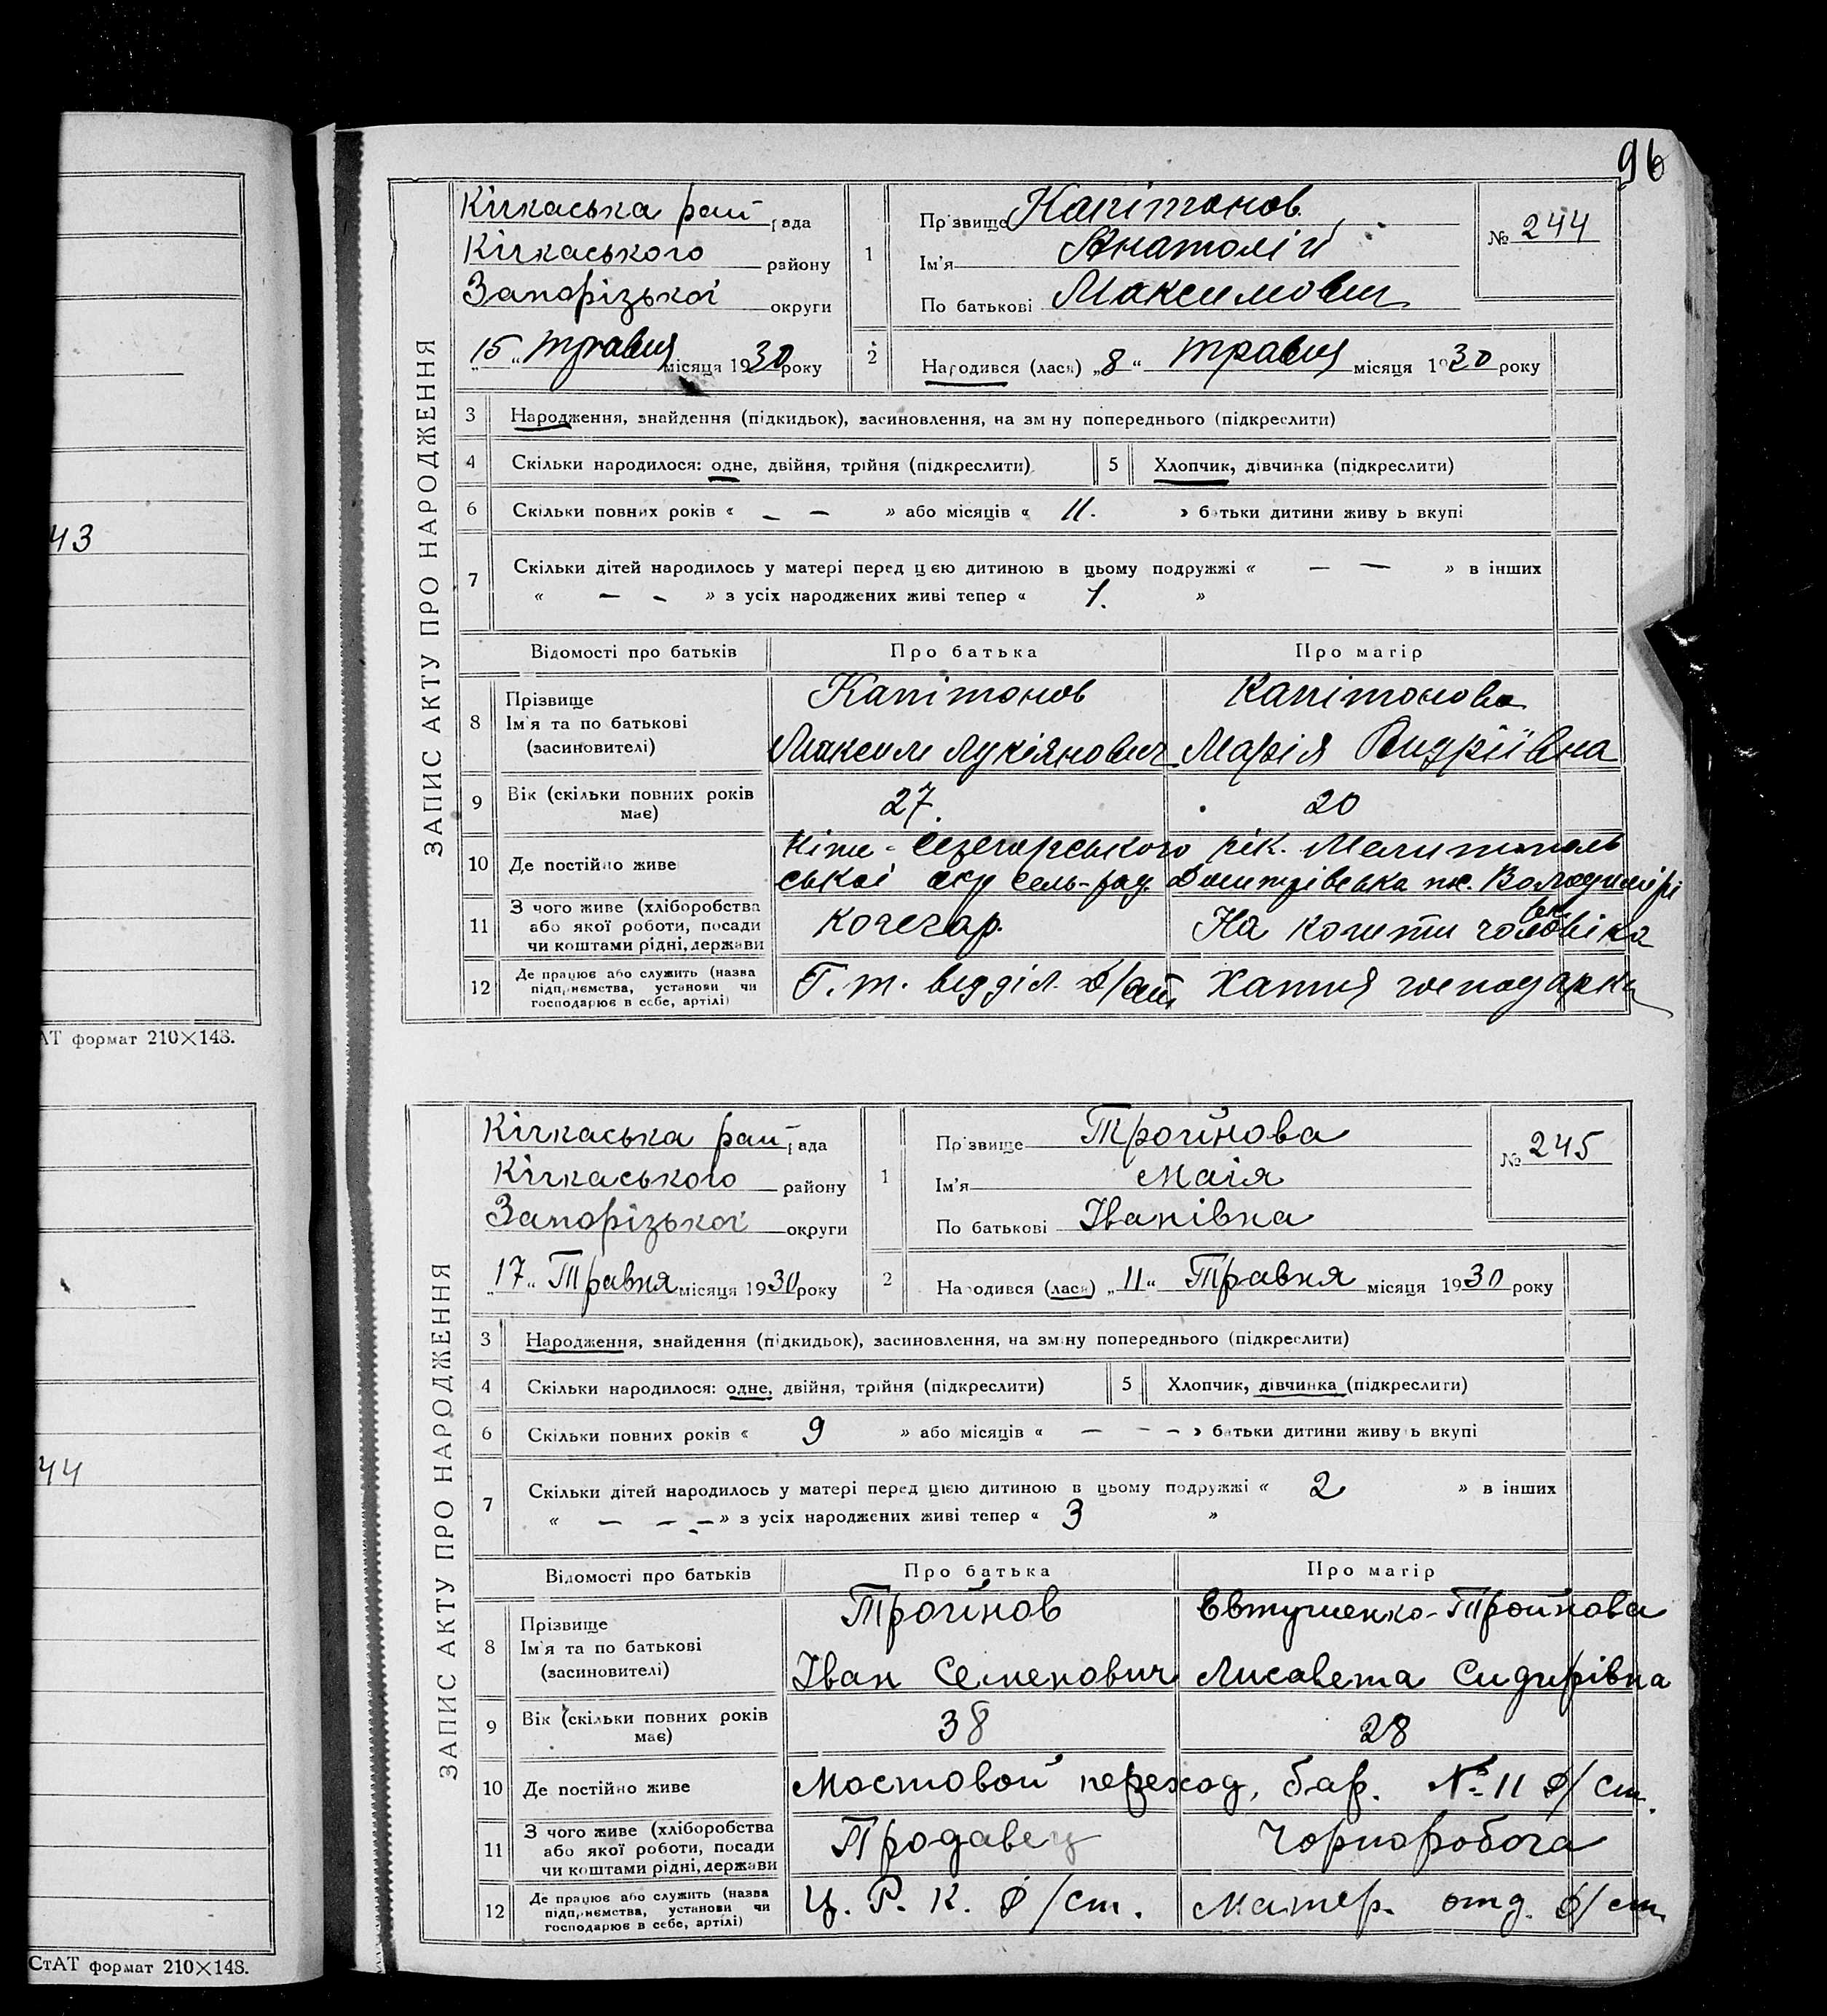 96
43
АТ формат 210×148.
44
СтАТ формат 210×148.
ЗАПИС АКТУ ПРО НАРОДЖЕННЯ
Кічкаська рай рада
Кічкаського району
Запорізької округи
„15“ травня місяця 1930 року
1
Прізвище Капітонов
Ім'я Анатолій
По батькові Максимович
№ 244
2
Народився (лася) „8“ травня місяця 1930 року
3 Народження, знайдення (підкидьок), засиновлення, на зм ну попереднього (підкреслити)
4 Скільки народилося: одне, двійня, трійня (підкреслити) 5 Хлопчик, дівчинка (підкреслити)
6 Скільки повних років « — — » або місяців « 11. » батьки дитини живу ь вкупі
7 Скільки дітей народилось у матері перед цією дитиною в цьому подружжі « — — » в інших
« — — » з усіх народжених живі тепер « 1. »
Відомості про батьків Про батька Про матір
8 Прізвище
Ім'я та по батькові
(засиновителі)
Капітонов Капітонова
Максим Лукіянович Марія Андріївна
9 Вік (скільки повних років
має)
27. 20
10 Де постійно живе
рік. Мелитополь
ської окр сель-рад.
11 З чого живе (хліборобства
або якої роботи, посади
чи коштами рідні, держави
Кочегар. На кошти чоловіка
12 Де працює або служить (назва
підприємства, установи чи
господарює в себе, артілі)
відділ Хатня господарка
ЗАПИС АКТУ ПРО НАРОДЖЕННЯ
Кічкаська рай рада
Кічкаського району
Запорізької округи
„17“ Травня місяця 1930 року
1
Прізвище Тройнова
Ім'я Маія
По батькові Іванівна
№ 245
2
Народився (лася) „11“ Травня місяця 1930 року
3 Народження, знайдення (підкидьок), засиновлення, на зміну попереднього (підкреслити)
4 Скільки народилося: одне, двійня, трійня (підкреслити) 5 Хлопчик, дівчинка (підкреслити)
6 Скільки повних років « 9 » або місяців « — — — » батьки дитини живу ь вкупі
7 Скільки дітей народилось у матері перед цією дитиною в цьому подружжі « 2 » в інших
« — — — » з усіх народжених живі тепер « 3 »
Відомості про батьків Про батька Про матір
8 Прізвище
Ім'я та по батькові
(засиновителі)
Тройнов Євтушенко-Тройнова
Іван Семенович Лисавета Сидирівна
9 Вік (скільки повних років
має)
38 28
10 Де постійно живе
Мостовой переход, бар. № 11 Д/ст.
11 З чого живе (хліборобства
або якої роботи, посади
чи коштами рідні, держави
Продавец Чорноробоча
12 Де працює або служить (назва
підприємства, установи чи
господарює в себе, артілі)
Ц. Р. К. Д/ст. Матер. отд. Д/ст.